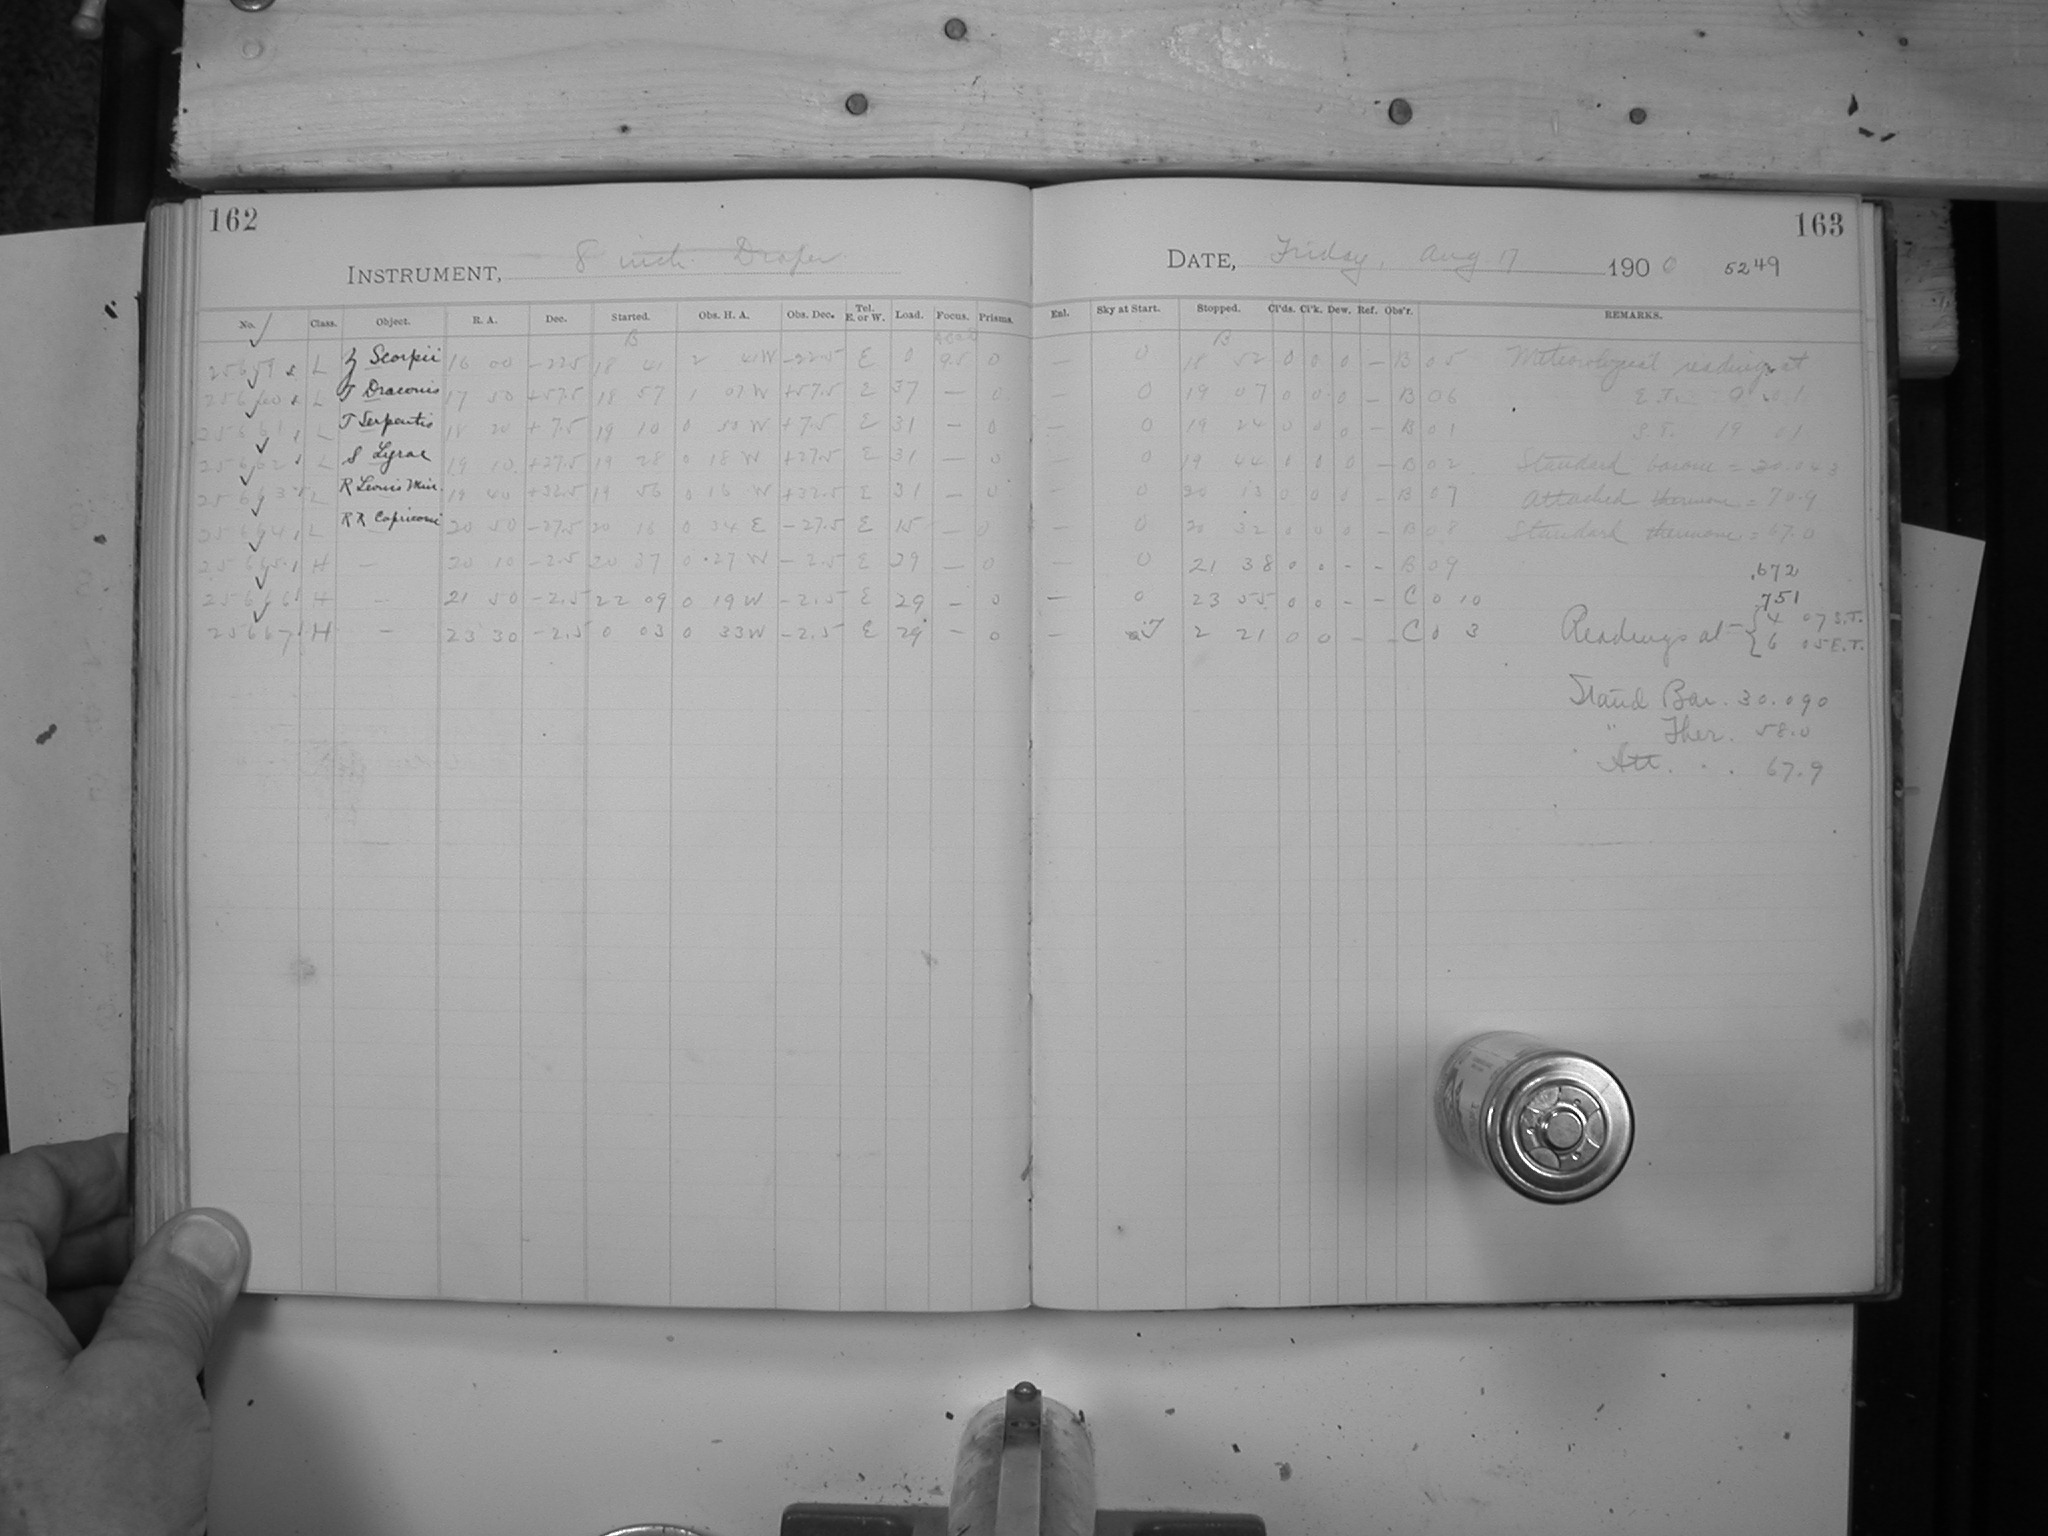 162
INSTRUMENT, 8 inch Draper
No. Class. Object. R. A. Dec. Started. Obs. H. A. Obs. Dec. Tel. E. or W. Load. Focus. Prisms.
B
25659 L Z Scorpii 16 00 -22.5 18 41 2 41 W -22.5 E 0 9.5 0
25660 L T Draconis 17 50 +57.5 18 57 1 07 W +57.5 E 37 — 0
25661 L T Serpentis 18 20 +7.5 19 10 0 50 W +7.5 E 31 — 0
25662 L S Lyrae 19 10 +27.5 19 28 0 18 W +27.5 E 31 — 0
25663 L R Leonis Min. 19 40 +32.5 19 56 0 16 W +32.5 E 31 — 0
25664 L RR Capricorni 20 50 -27.5 20 16 0 34 E -27.5 E 15 — 0
25665 H — 20 10 -2.5 20 37 0 27 W -2.5 E 29 — 0
25666 H — 21 50 -2.5 22 09 0 19 W -2.5 E 29 — 0
25667 H — 23 30 -2.5 0 03 0 33 W -2.5 E 29 — 0
163
DATE, Friday, Aug 17 1900 5249
Enl. Sky at Start. Stopped. Cl'ds. Cl'k. Dew. Ref. Obs'r. REMARKS.
B
— 0 18 52 0 0 0 — B 05 Meteorological readings at
— 0 19 07 0 0 0 — B 06 E.T.
— 0 19 24 0 0 0 — B 01 S.T. 19 01
— 0 19 44 0 0 0 — B 02 Standard barom = 30.043
— 0 20 13 0 0 0 — B 07 Attached thermom = 70.9
— 0 20 32 0 0 0 — B 08 Standard thermom = 67.0
0 21 38 0 0 - - B 09 .672
— 0 23 55 0 0 - - C 0 10 751
— 2 21 0 0 - - C 0 3 Readings at — { 4 07 S.T.
6 05 E.T.
Stand Bar. 30.090
" Ther. 58.0
Att. . . 67.9